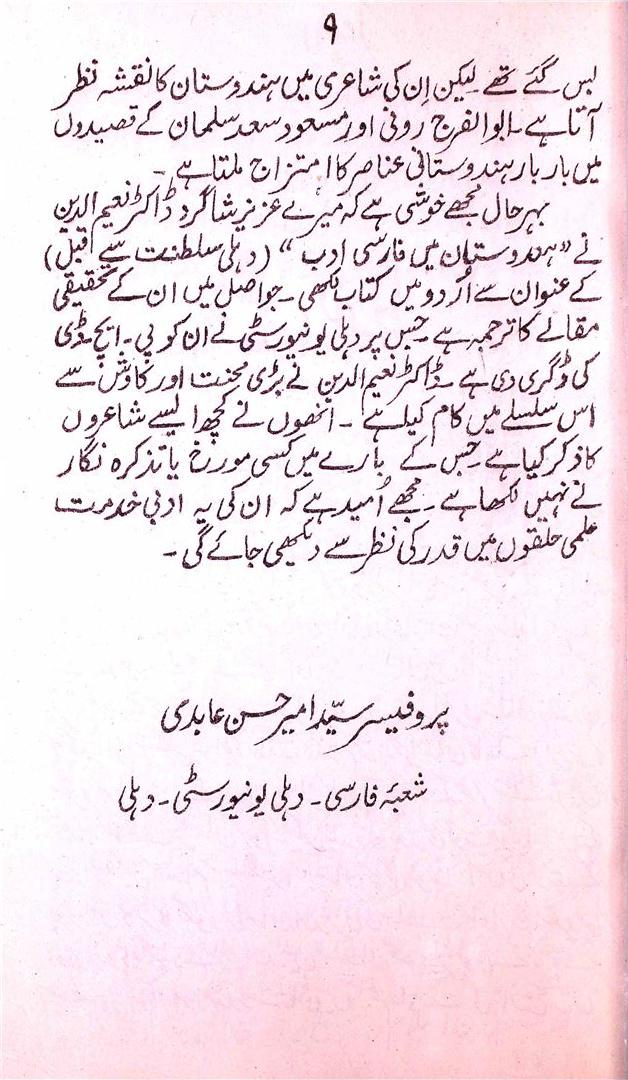 ۹
بس گئے تھے۔ لیکن اِن کی شاعری میں ہندوستان کا نقشہ نظر
آتا ہے۔ ابوالفرج رونی اور مسعود سعد سلمان کے قصیدوں
میں بار بار ہندوستانی عناصر کا امتزاج ملتا ہے۔
بہرحال مجھے خوشی ہے کہ میرے عزیز شاگرد ڈاکٹر نعیم الدین
نے "ہندوستان میں فارسی ادب" (دہلی سلطنت سے قبل)
کے عنوان سے اُردو میں کتاب لکھی۔ جو اصل میں ان کے تحقیقی
مقالے کا ترجمہ ہے۔ جس پر دہلی یونیورسٹی نے ان کو پی۔ ایچ۔ ڈی
کی ڈگری دی ہے۔ ڈاکٹر نعیم الدین نے بڑی محنت اور کاوش سے
اس سلسلے میں کام کیا ہے۔ انھوں نے کچھ ایسے شاعروں
کا ذکر کیا ہے۔ جس کے بارے میں کسی مورخ یا تذکرہ نگار
نے نہیں لکھا ہے۔ مجھے اُمید ہے کہ ان کی یہ ادبی خدمت
علمی حلقوں میں قدر کی نظر سے دیکھی جائے گی۔
پروفیسر سیّد امیر حسن عابدی
شعبۂ فارسی۔ دہلی یونیورسٹی۔ دہلی